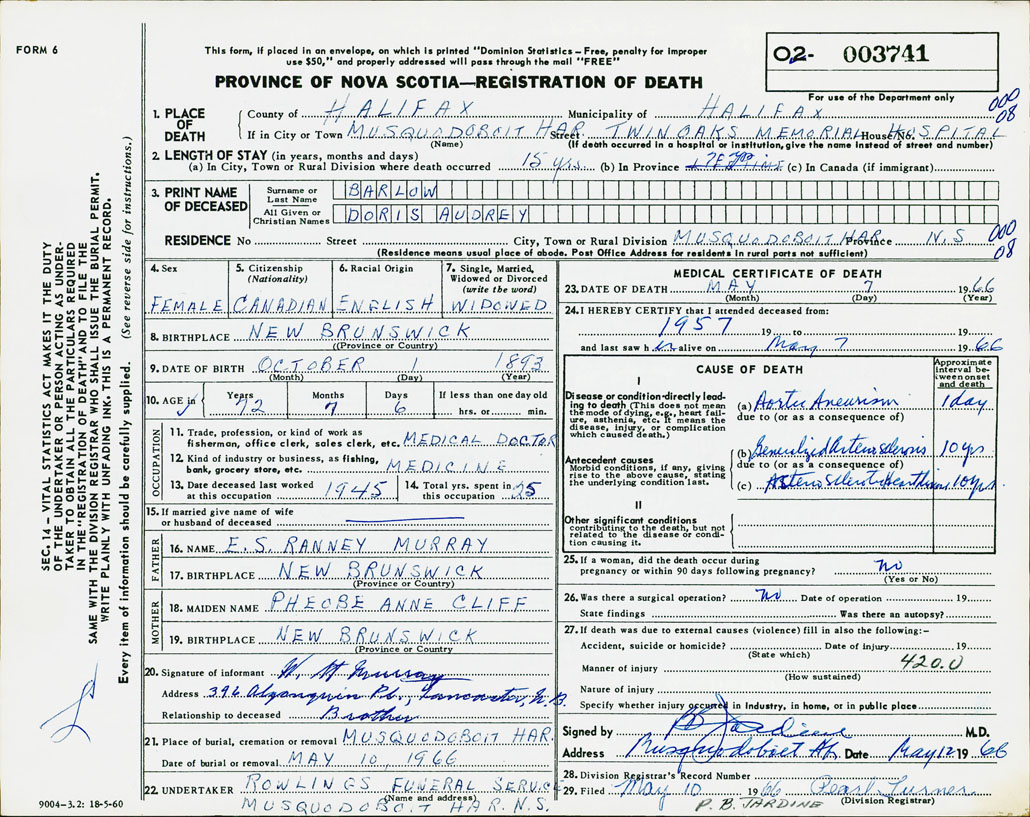 FORM 6
This form, if placed in an envelope, on which is printed "Dominion Statistics – Free, penalty for improper
use $50," and properly addressed will pass through the mail "FREE"
PROVINCE OF NOVA SCOTIA—REGISTRATION OF DEATH
02- 003741
For use of the Department only
1. PLACE OF DEATH
County of HALIFAX Municipality of HALIFAX 000 08
If in City or Town MUSQUODOBOIT HAR Street TWIN OAKS MEMORIAL House/No. HOSPITAL
(Name) (If death occurred in a hospital or institution, give the name instead of street and number)
2. LENGTH OF STAY (in years, months and days)
(a) In City, Town or Rural Division where death occurred 15 yrs. (b) In Province (c) In Canada (if immigrant)
3. PRINT NAME OF DECEASED
Surname or Last Name BARLOW
All Given or Christian Names DORIS AUDREY
RESIDENCE No Street City, Town or Rural Division MUSQUODOBOIT HAR Province N.S 000 08
(Residence means usual place of abode. Post Office Address for residents in rural parts not sufficient)
SEC. 14 – VITAL STATISTICS ACT MAKES IT THE DUTY
OF THE UNDERTAKER OR PERSON ACTING AS UNDER-
TAKER TO OBTAIN ALL THE PARTICULARS REQUIRED
IN THE "REGISTRATION OF DEATH" AND TO FILE THE
SAME WITH THE DIVISION REGISTRAR WHO SHALL ISSUE THE BURIAL PERMIT.
WRITE PLAINLY WITH UNFADING INK. THIS IS A PERMANENT RECORD.
Every item of information should be carefully supplied. (See reverse side for instructions.)
4. Sex FEMALE
5. Citizenship (Nationality) CANADIAN
6. Racial Origin ENGLISH
7. Single, Married, Widowed or Divorced (write the word) WIDOWED
8. BIRTHPLACE NEW BRUNSWICK
(Province or Country)
9. DATE OF BIRTH OCTOBER 1 1893
(Month) (Day) (Year)
10. AGE in Years 72 Months 7 Days 6 If less than one day old hrs. or min.
OCCUPATION
11. Trade, profession, or kind of work as
fisherman, office clerk, sales clerk, etc. MEDICAL DOCTOR
12. Kind of industry or business, as fishing,
bank, grocery store, etc. MEDICINE
13. Date deceased last worked
at this occupation 1945
14. Total yrs. spent in
this occupation 25
15. If married give name of wife
or husband of deceased
FATHER
16. NAME E.S. RANNEY MURRAY
17. BIRTHPLACE NEW BRUNSWICK
(Province or Country)
MOTHER
18. MAIDEN NAME PHEOBE ANNE CLIFF
19. BIRTHPLACE NEW BRUNSWICK
(Province or Country)
20. Signature of informant W. H. Murray
Address 396 Algonquin Pl., Lancaster, N.B.
Relationship to deceased Brother
21. Place of burial, cremation or removal MUSQUODOBOIT HAR.
Date of burial or removal MAY 10, 1966
22. UNDERTAKER ROWLINGS FUNERAL SERVICE
(Name and address)
MUSQUODOBOIT HAR. N.S.
9004–3.2: 18-5-60
MEDICAL CERTIFICATE OF DEATH
23. DATE OF DEATH MAY 7 1966
(Month) (Day) (Year)
24. I HEREBY CERTIFY that I attended deceased from:
1957 19 to 19
and last saw her alive on May 7 1966
CAUSE OF DEATH
Approximate interval between onset and death
I
Disease or condition-directly lead-
ing to death (This does not mean
the mode of dying, e.g., heart fail-
ure, asthenia, etc. It means the
disease, injury, or complication
which caused death.)
(a) Aortic Aneurism 1 day
due to (or as a consequence of)
Antecedent causes
Morbid conditions, if any, giving
rise to the above cause, stating
the underlying condition last.
(b) Generalized Arteriosclerosis 10 yrs.
due to (or as a consequence of)
(c) 10 yrs.
II
Other significant conditions
contributing to the death, but not
related to the disease or condi-
tion causing it.
25. If a woman, did the death occur during
pregnancy or within 90 days following pregnancy? no
(Yes or No)
26. Was there a surgical operation? no Date of operation 19
State findings Was there an autopsy?
27. If death was due to external causes (violence) fill in also the following:–
Accident, suicide or homicide? Date of injury 19
(State which)
Manner of injury 420.0
(How sustained)
Nature of injury
Specify whether injury occurred in Industry, in home, or in public place
Signed by P B Jardine M.D.
Address Musquodoboit Hr. Date May 12 1966
28. Division Registrar's Record Number
29. Filed May 10 1966 Pearl Turner
P. B. JARDINE (Division Registrar)